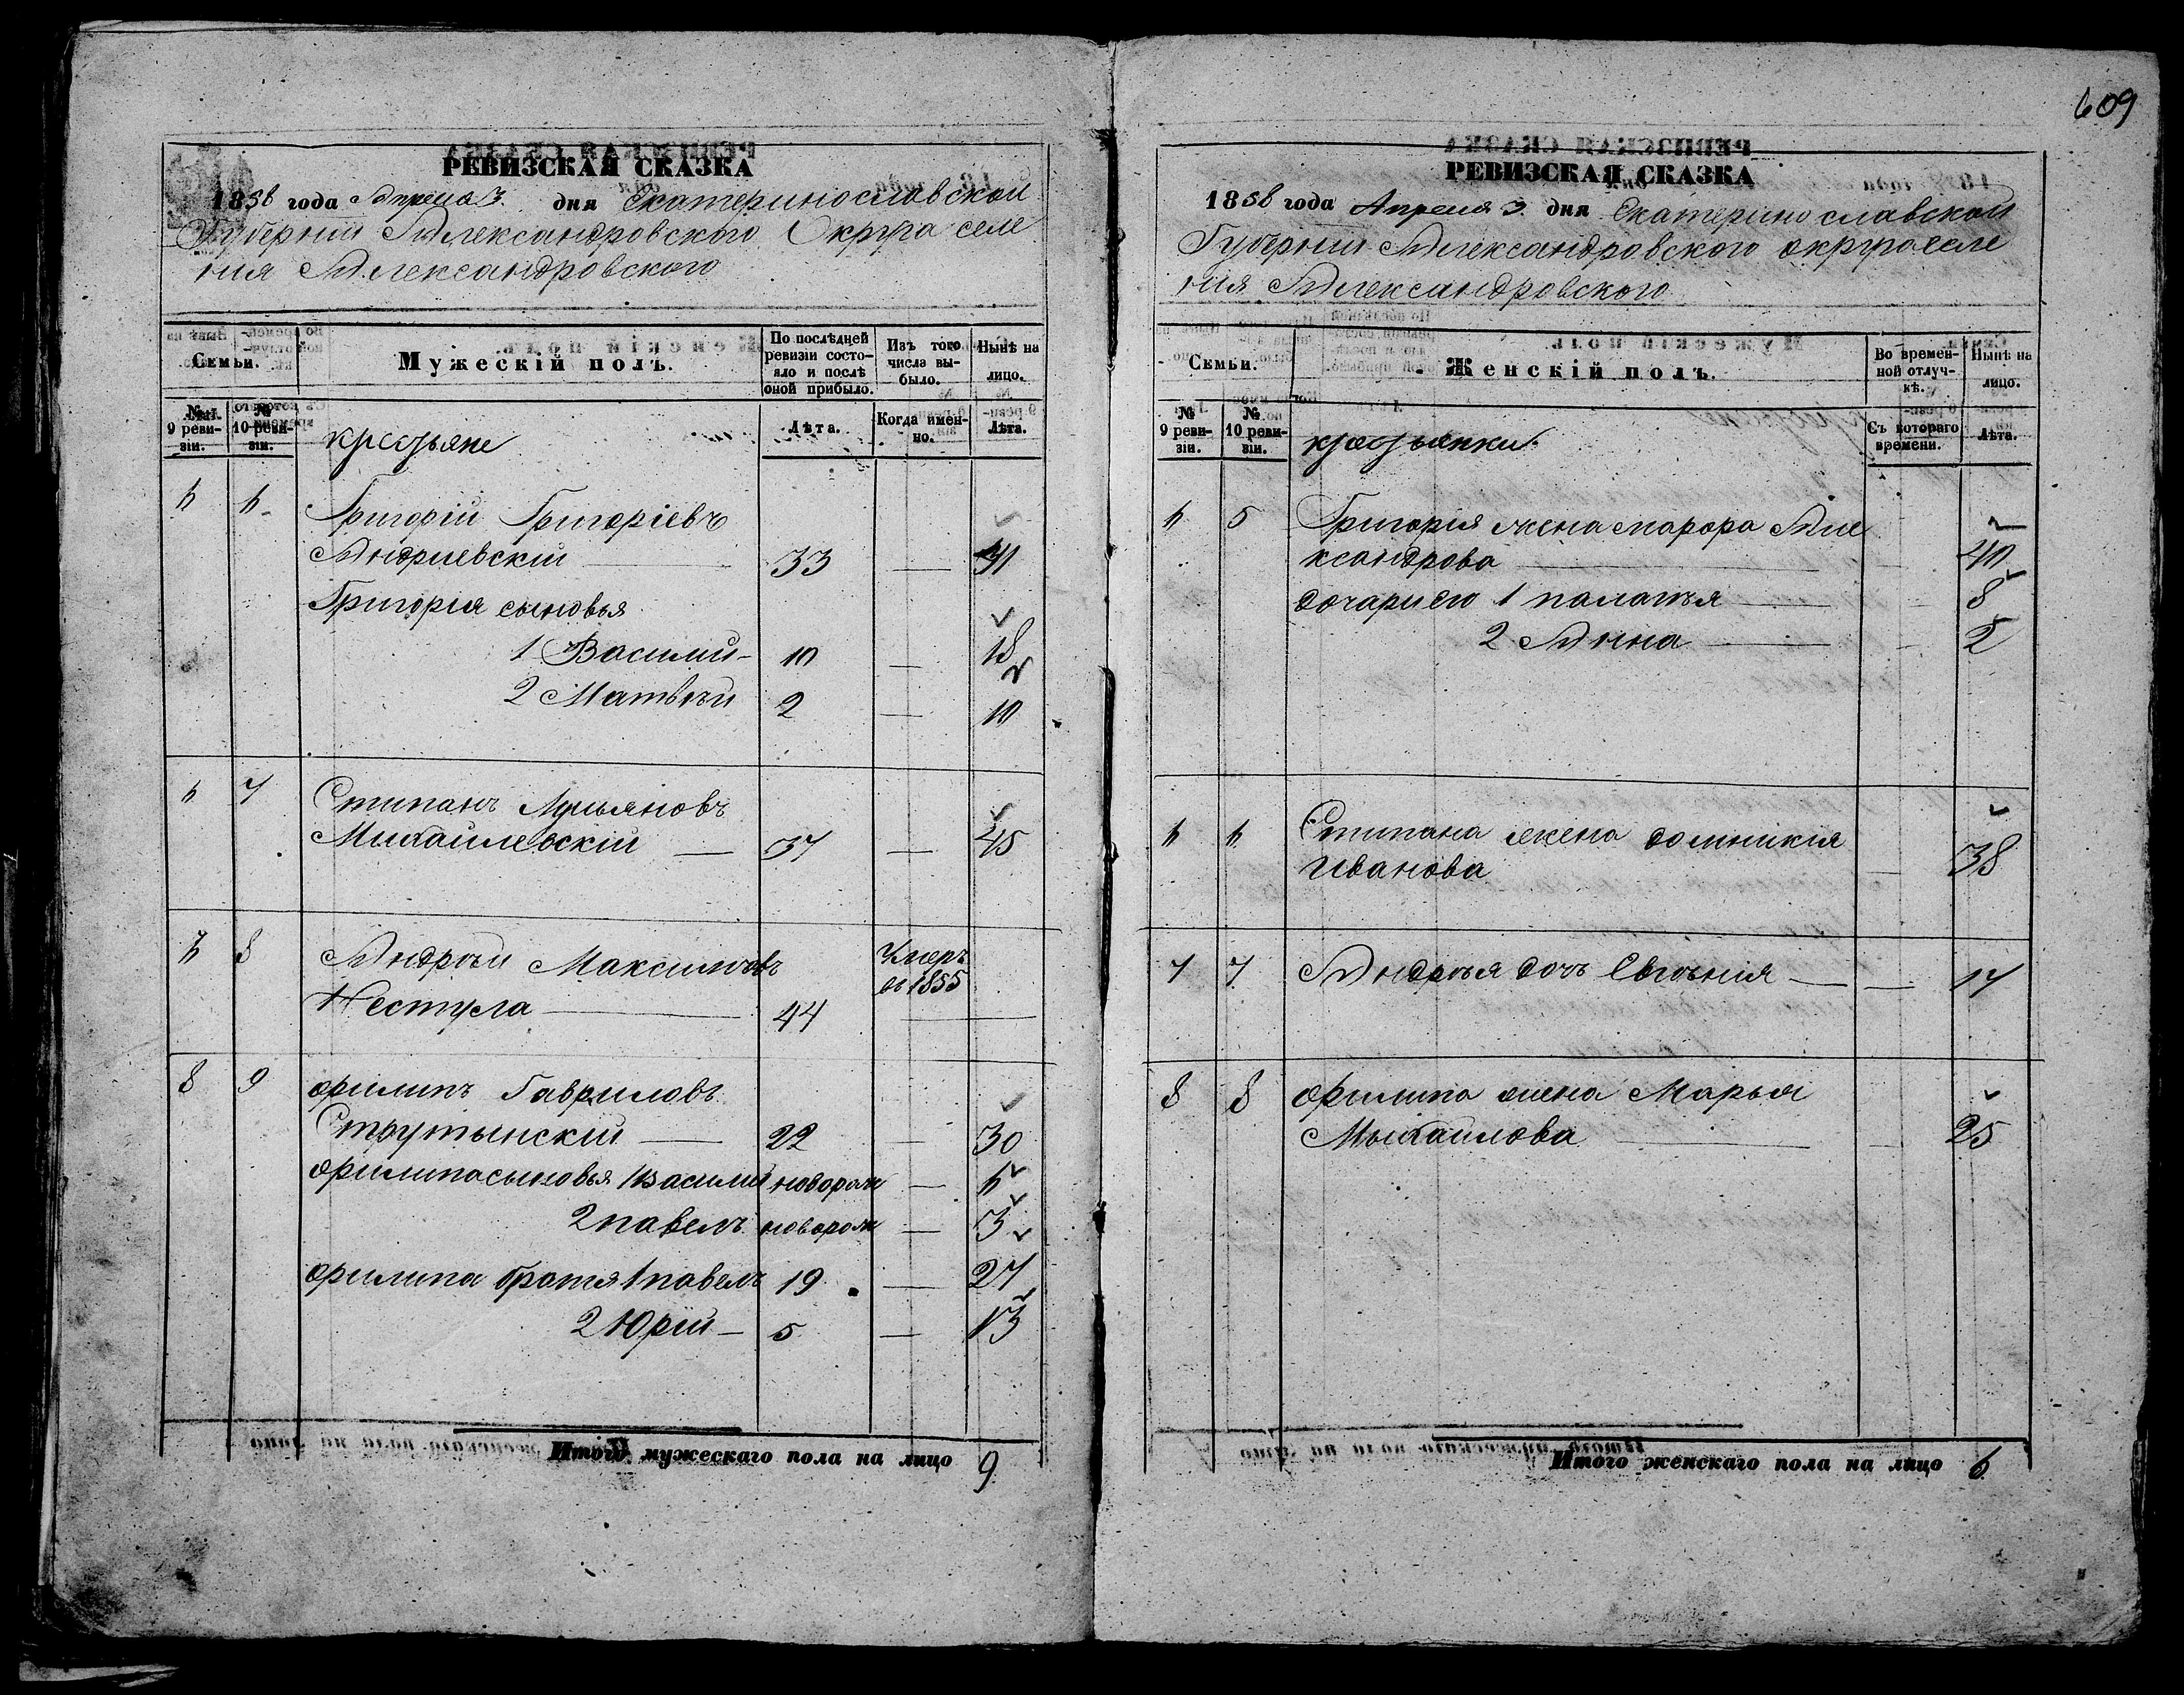 609
РЕВИЗСКАЯ СКАЗКА
1858 года Апреля 3. дня Екатеринославской
Губернии Александровского Округа селе
ния Александровского
Семьи.
Мужескій полъ.
По послѣдней ревизіи состояло и послѣ оной прибыло.
Изъ того числа выбыло.
Нынѣ на лицо.
№ 9 ревизіи.
№ 10 ревизіи.
крестьяне
Лѣта.
Когда именно.
Лѣта.
Григорій Григоріевъ
Андриевскій 33 — 41
Григорія сыновья
1 Василий 10 — 18
2 Матвѣй 2 — 10
7
Стипанъ
Михайлевскій — 37 — 45
8
Андрѣй Максимовъ
Умеръ въ 1855
Нестула — 44
8 9 Филипъ Гавриловъ
Струтынскій — 22 — 30
Филипа сыновья 1 Василий новорож —
2 павелъ новорож — 3
Филипа братя 1 павелъ 19 — 27
2 Юрій — 5 — 13
Итого мужескаго пола на лицо 9.
РЕВИЗСКАЯ СКАЗКА
1858 года Апреля 3. дня Екатеринославской
Губернии Александровского округа селе
ния Александровского
Семьи.
Женскій полъ.
Во временной отлучкѣ.
Нынѣ на лицо.
№ 9 ревизіи.
№ 10 ревизіи.
крестьянки
Съ котораго времени.
Лѣта.
5 Григорія жена Але
ксандрова — 40
дочари его 1 палагъя — 8
2 Анна — 2
Стипана жена домникія
Иванова — 38
7 7 Андрѣя дочь Евгѣнія — 17
8 8 Филипа жена Марья
Михайлова — 25
Итого женскаго пола на лицо 6.